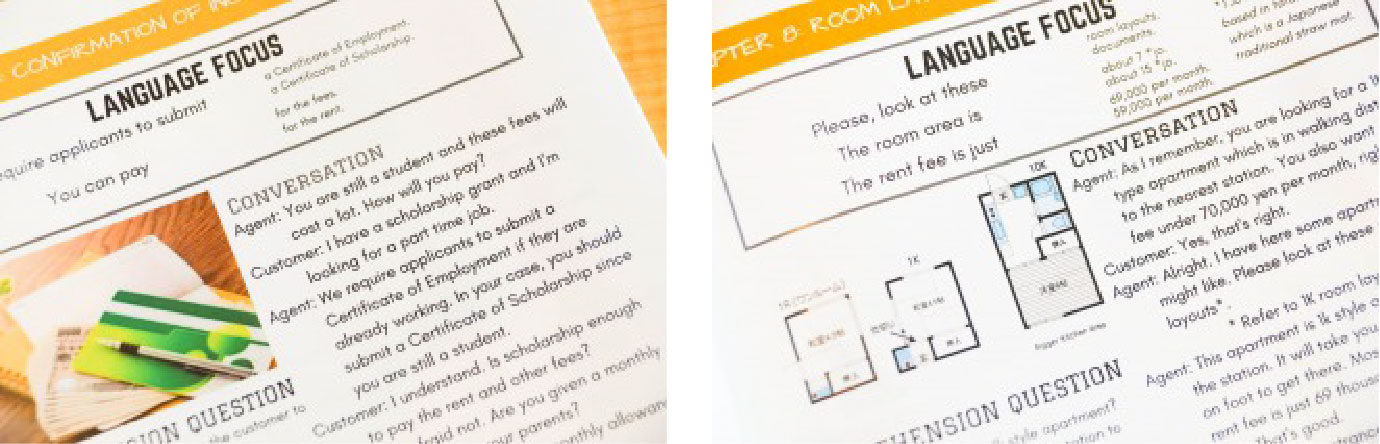 CONFIRMATION OF
LANGUAGE FOCUS
equire applicants to submit
a Certificate of Employment.
a Certificate of Scholarship.
You can pay
for the fees.
for the rent.
CONVERSATION
Agent: You are still a student and these fees will
cost a lot. How will you pay?
Customer: I have a scholarship grant and I'm
looking for a part time job.
Agent: We require applicants to submit a
Certificate of Employment if they are
already working. In your case, you should
submit a Certificate of Scholarship since
you are still a student.
Customer: I understand. Is scholarship enough
to pay the rent and other fees?
raid not. Are you given a monthly
ur parents?
nthly allowan
SION QUESTION
the customer to
PTER 8: ROOM LA
LANGUAGE FOCUS
Please, look at these
room layouts.
documents.
The room area is
about 7 *jo.
about 15 *jo.
The rent fee is just
69,000 per month.
59,000 per month.
based in
which is a Japanese
traditional straw mat.
CONVERSATION
Agent: As I remember, you are looking for a 1K
type apartment which is in walking dist
to the nearest station. You also want
fee under 70,000 yen per month, righ
Customer: Yes, that's right.
Agent: Alright, I have here some apartm
might like. Please look at these
layouts*.
* Refer to 1K room lay
Agent: This apartment is 1k style a
the station. It will take you
on foot to get there. Mos
rent fee is just 69 thous
that's good.
1K
1DK
Bigger kitchen area
HENSION QUESTION
style apartment?
tation to